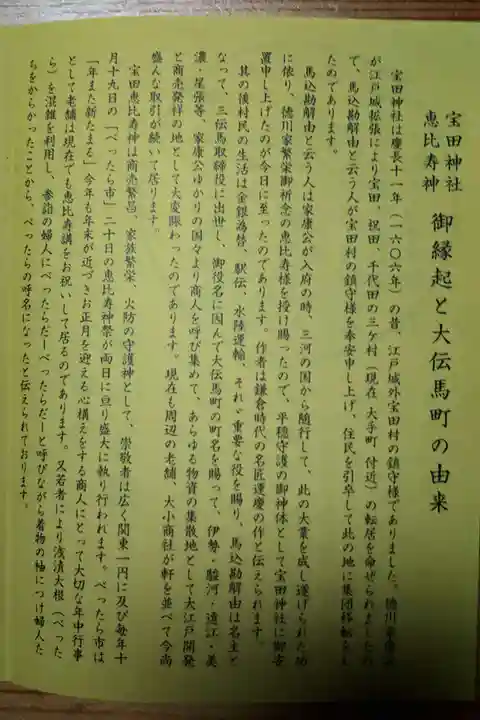 宝田神社
恵比寿神
御縁起と大伝馬町の由来
宝田神社は慶長十一年(一六〇六年)の昔、江戸城外宝田村の鎮守様でありました。徳川家康公
が江戸城拡張により宝田、祝田、千代田の三ケ村(現在 大手町 付近)の転居を命ぜられましたの
て、馬込勘解由と云う人が宝田村の鎮守様を奉安申し上げ、住民を引卒して此の地に集団移転をし
たのであります。
馬込勘解由と云う人は家康公が入府の時、三河の国から随行して、此の大業を成し遂げられた功
に依り、徳川家繁栄御祈念の恵比寿様を授け賜ったので、平穏守護の御神体として宝田神社に御安
置申し上げたのが今日に至ったのであります。作者は鎌倉時代の名匠運慶の作と伝えられます。
其の後村民の生活は金銀為替、駅伝、水陸運輸、それゞ重要な役を賜り、馬込勘解由は名主と
なって、三伝馬取締役に出世し、御役名に因んで大伝馬町の町名を賜って、伊勢・駿河・遠江・美
濃・尾張等、家康公ゆかりの国々より商人を呼び集めて、あらゆる物資の集散地として大江戸開発
と商売発祥の地として大変賑わったのであります。現在も周辺の老舗、大小商社が軒を並べて今尚
盛んな取引が続いて居ります。
宝田恵比寿神は商売繁昌、家族繁栄、火防の守護神として、崇敬者は広く関東一円に及び毎年十
月十九日の「べったら市」二十日の恵比寿神祭が両日に亘り盛大に執り行われます。べったら市は
「年また新たまる」今年も年末が近づきお正月を迎える心構えをする商人にとって大切な年中行事
として老舗は現在でも恵比寿講をお祝いして居るのであります。又若者により浅漬大根(べった
ら)を混雑を利用し、参詣の婦人にべったらだーべったらだーと呼びながら着物の袖につけ婦人た
ちをからかったことから、べったらの呼名になったと伝えられております。